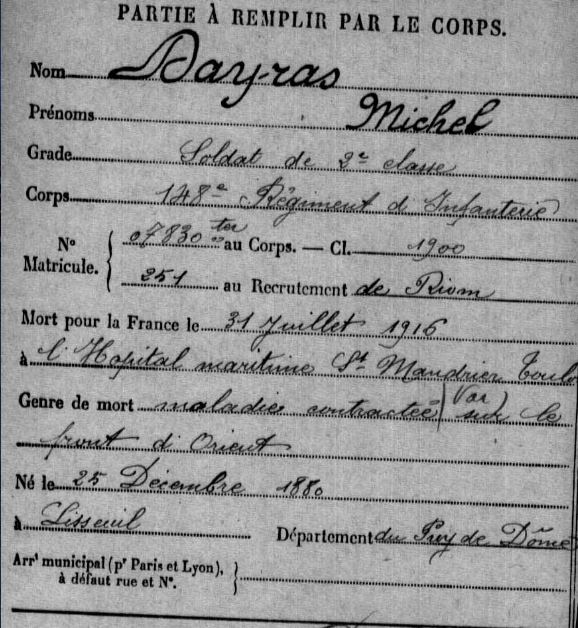 PARTIE À REMPLIR PAR LE CORPS.
Nom Dayras
Prénoms Michel
Grade Soldat de 2e classe
Corps 148e Régiment d'Infanterie
No Matricule. 07830 ter au Corps. — Cl. 1900
251 au Recrutement de Riom
Mort pour la France le 31 Juillet 1916
à l'Hopital maritime St Mandrier Toulo
Genre de mort maladie contractée (Var) sur le
front d'Orient
Né le 25 Décembre 1880
à Lisseuil Département du Puy de Dôme
Arrt municipal (pr Paris et Lyon),
à défaut rue et No.